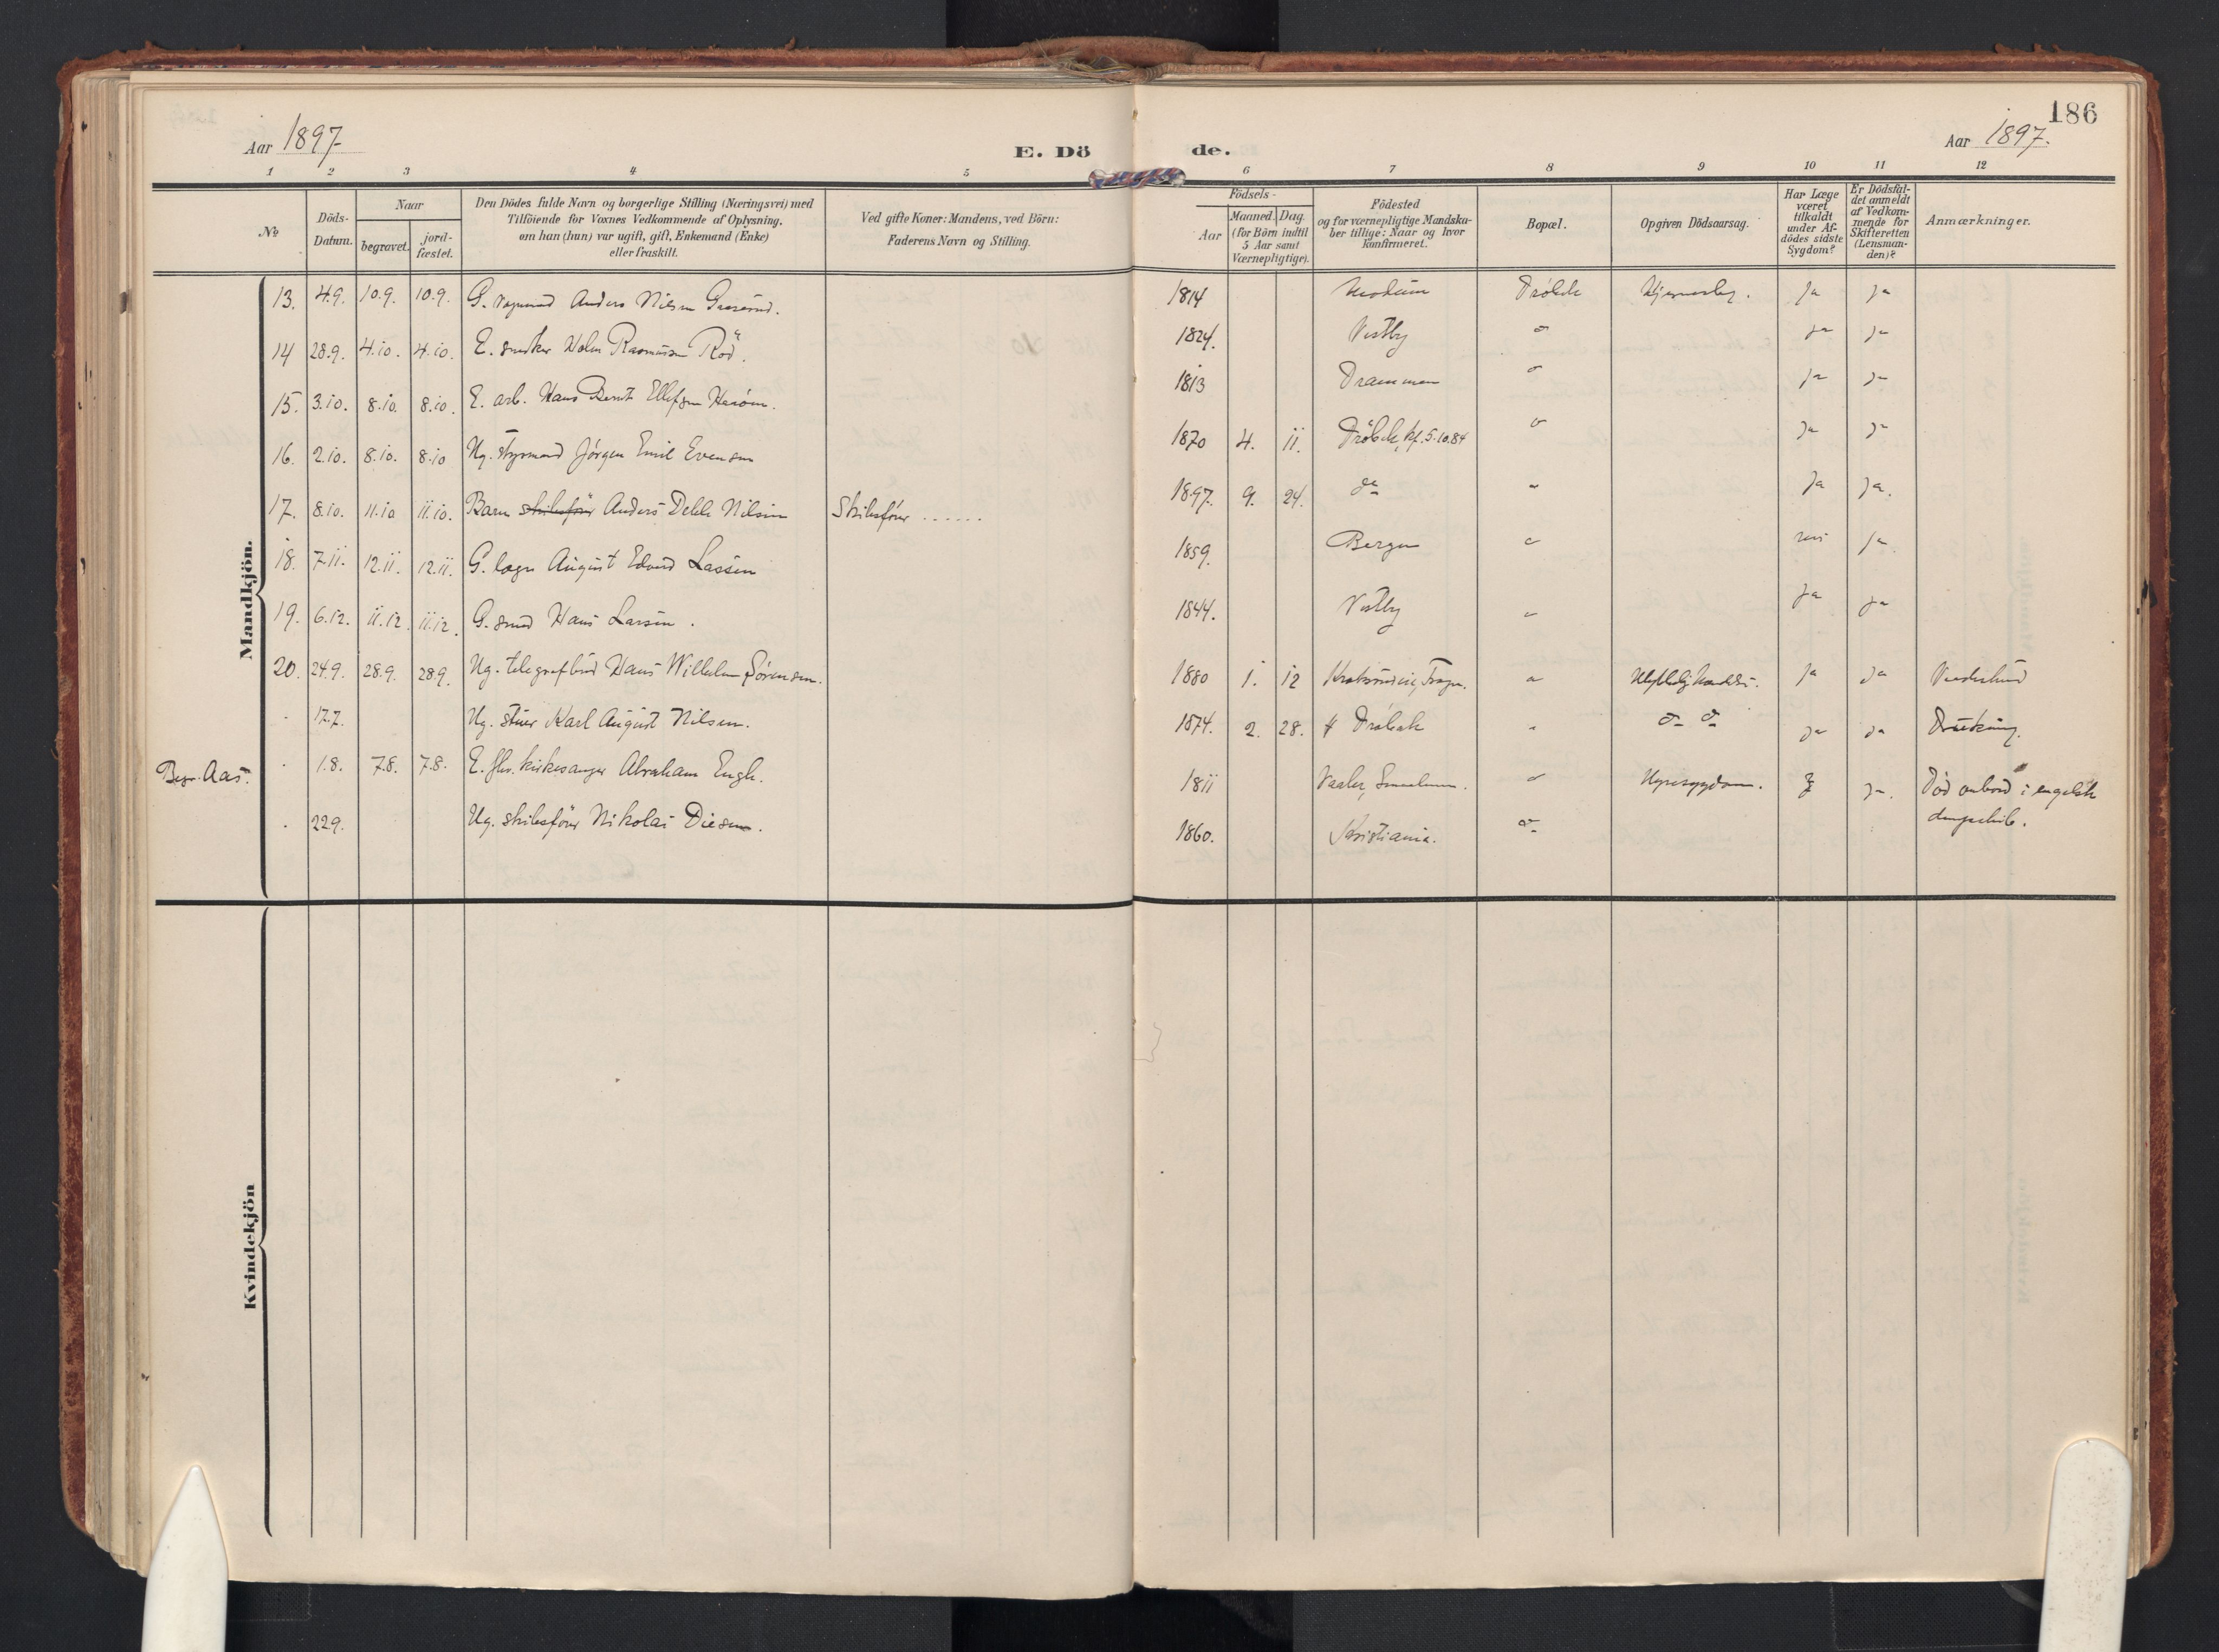 186
Aar 1897.
E. Dö
de.
Aar 1897.
1 2 3 4 5 6 7 8 9 10 11 12
No
Döds-
Datum.
Naar
begravet.
jord-
fæstet.
Den Dödes fulde Navn og borgerlige Stilling (Næringsvei) med
Tilföiende for Voxnes Vedkommende af Oplysning,
om han (hun) var ugift, gift, Enkemand (Enke)
eller fraskilt.
Ved gifte Koner: Mandens, ved Börn:
Faderens Navn og Stilling.
Födsels-
Aar
Maaned. Dag.
(for Börn indtil
5 Aar samt
Værnepligtige).
Födested
og for værnepligtige Mandska-
ber tillige: Naar og hvor
konfirmeret.
Bopæl.
Opgiven Dödsaarsag.
Har Læge
været
tilkaldt
under Af-
dödes sidste
Sygdom?
Er Dödsfal-
det anmeldt
af Vedkom-
mende for
Skifteretten
(Lensman-
den)?
Anmærkninger.
Mandkjön.
13. 4.9. 10.9. 10.9. G. Anders Nilsen 1814 Modum Dröbak ja ja
14 28.9. 4.10. 4.10. E. snedker Holm Rasmussen Röd. 1824. Vestby " ja ja
15. 3.10. 8.10. 8.10. E. arb. Hans Bernt Ellefsen 1813 Drammen " ja ja
16. 2.10. 8.10. 8.10 Ug. styrmand Jörgen Emil Evensen 1870 4. 11. Dröbak, kf. 5.10.84 " ja ja
17. 8.10. 11.10 11.10. Barn skibsförer Anders Dehli Nilsen Skibsförer ...... 1897. 9. 24. do " ja ja.
18. 7.11. 12.11. 12.11. G. læge August Edvard Lassen 1859. Bergen " nei ja
19. 6.12. 11.12. 11.12. G. smed Hans Larsen. 1844. Vestby " ja ja
20. 24.9. 28.9. 28.9. Ug. telegrafbud Hans Wilhelm Sörensen. 1880 1. 12 Frogn. " ja ja
" 17.7. Ug. stuer Karl August Nilsen. 1874. 2. 28. Dröbak " do do ja ja Drukning.
Begr. Aas. " 1.8. 7.8. 7.8. E. fhv. kirkesanger Abraham Engh. 1811 Vaaler, Smaalenene. " Nyresygdom. ja ja.
" 22.9. Ug. skibsförer Nikolai Diesen. 1860. Kristiania. do Död ombord i engelsk
dampskib.
Kvindekjön